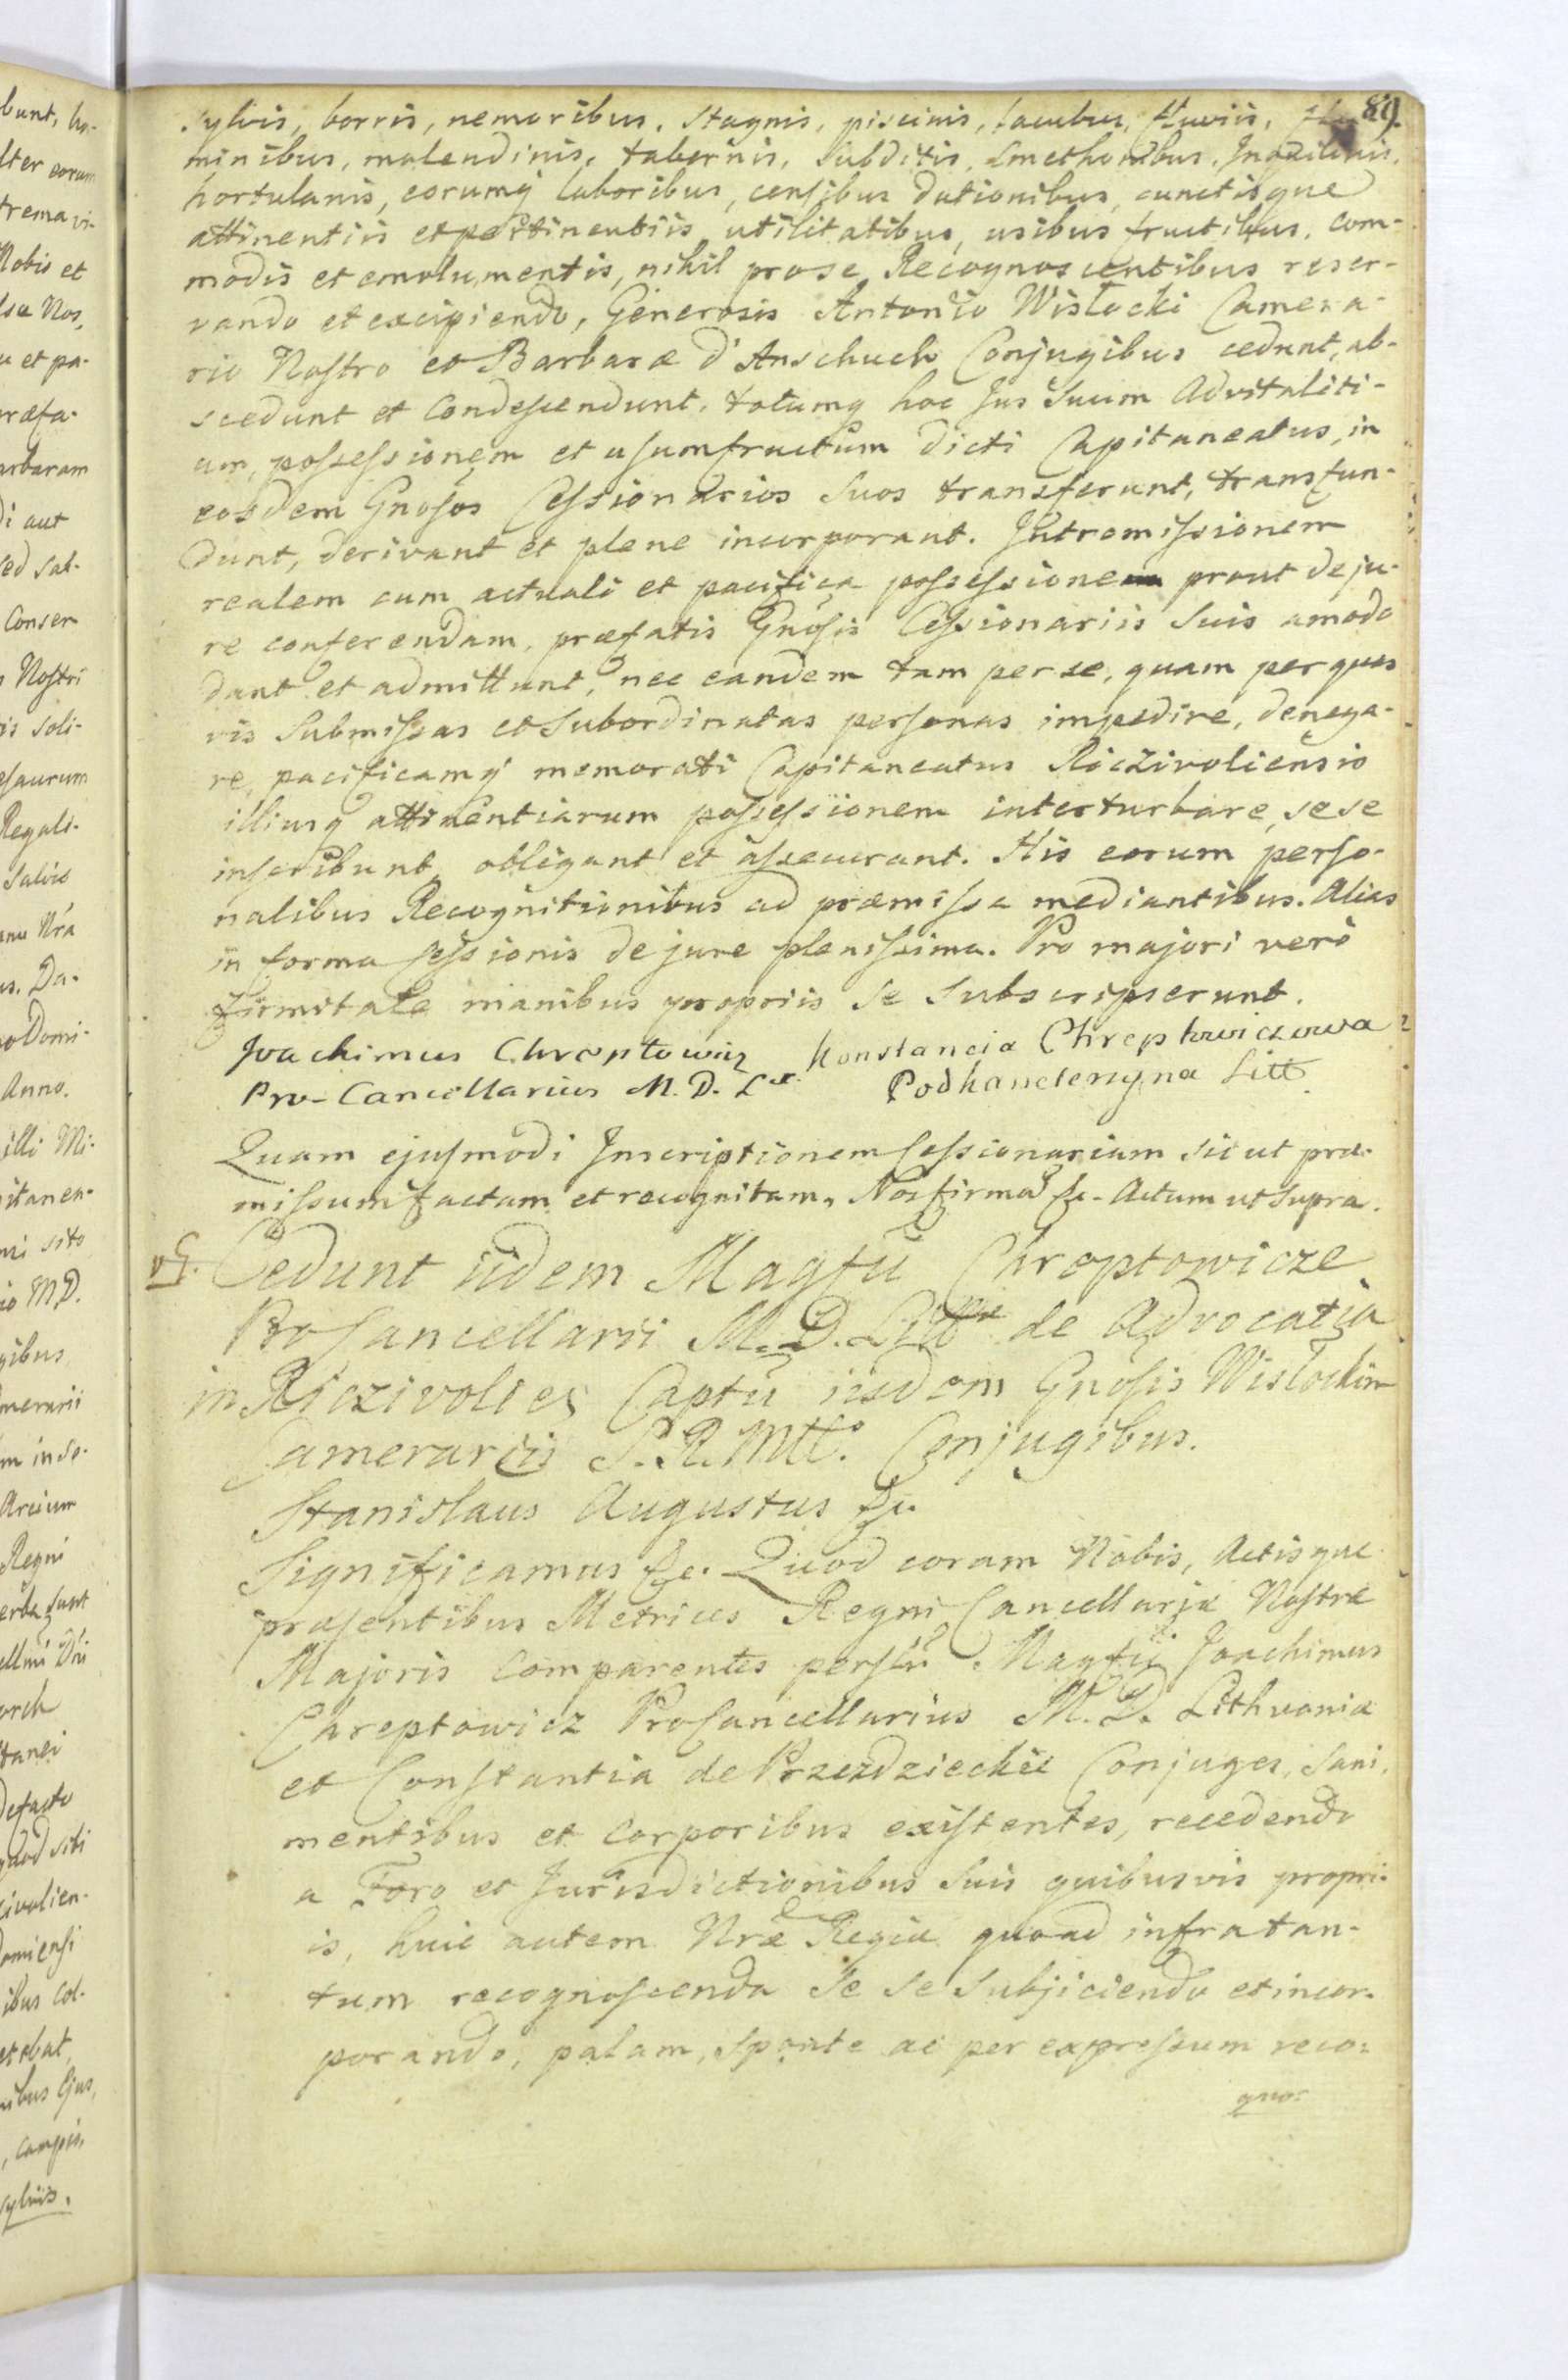 89.
sylvis, borris, nemoribus, stagnis, piscinis, lacubus, fluviis, flu-
minibus, molendinis, tabernis, Subditis, Cmethonibus, Inquilinis,
hortulanis, eorumq laboribus, censibus dationibus, cunctisque
attinentiis et pertinentiis utilitatibus, usibus fructibus, com-
modis et emolumentis, nihil prose Recognoscentibus reser-
vando et excipiendo, Generosis Antonio Wisłocki Camera-
rio Nostro et Barbaræ d'Anschuch Conjugibus cedunt, ab-
scedunt et Condescendunt, totumq hoc Jus Suum Advitaliti-
um, possessionem et usumfructum dicti Capitaneatus, in
eosdem Gnosos Cessionarios Suos transferunt, transfun-
dunt, derivant et plene incorporant. Intromissionem
realem cum actuali et pacifica possessione prout de ju-
re conferendam, præfatis Gnosis Cessionariis Suis amodo
dant et admittunt, nec eandem tam per se, quam per quas
vis Submissas et Subordinatas personas impedire, denega-
re, pacificamq memorati Capitaneatus Riczivoliensis
illiusq attinentiarum possessionem interturbare, sese
inscribunt, obligant et assecurant. His eorum perso-
nalibus Recognitionibus ad præmissa mediantibus. Alias
in forma Cessionis de jure plenissima. Pro majori verò
firmitate manibus propriis Se Subscripserunt.
Joachimus Chreptowicz Konstancia Chreptowiczowa
Pro-Cancellarius M. D. L Podkanclerzyna Litt
Quam ejusmodi Inscriptionem Cessionariam sicut præ-
missum factam et recognitam, Nos firma &c. Actum ut Supra.
Cedunt iidem Magfii Chreptowicze
ProCancellarii M. D. Litt de Advocatia
in Riczivol et Captu iisdem Gnosis Wisłockim
Camerariis S. R. Mtt. Conjugibus.
Stanislaus Augustus &c.
Significamus &c. Quod coram Nobis, Actisque
præsentibus Metrices Regni Cancellariæ Nostræ
Majoris Comparentes persłr. Magfii Joachimus
Chreptowicz ProCancellarius M. D. Lithvaniæ
et Constantia de Przezdzieckie Conjuges, Sani,
mentibus et Corporibus existentes, recedendo
a Foro et Jurisdictionibus Suis quibusvis propri-
is, huic autem Nræ Regiæ quoad infra tan-
tum recognoscenda Se Se Subjiciendo et incor-
porando, palam, sponte ac per expressum reco-
gno-